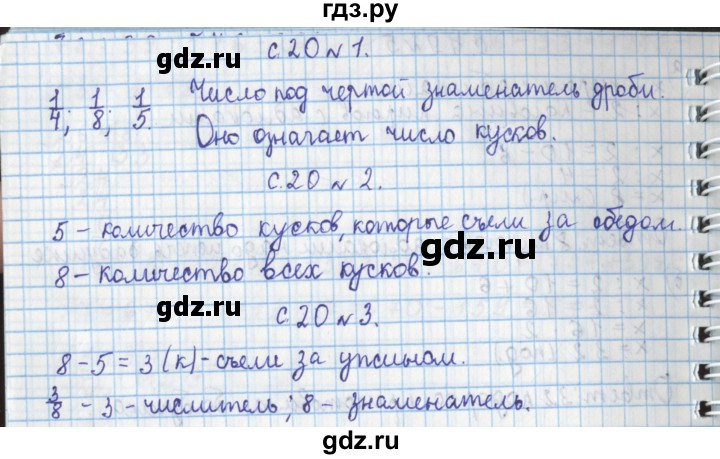 гдз.ру
с.20 №1.
1/4; 1/8; 1/5. Число под чертой знаменатель дроби.
Оно означает число кусков.
с.20 №2.
5 – количество кусков, которые съели за обедом.
8 – количество всех кусков.
с.20 №3.
8 – 5 = 3 (к) – съели за ужином.
3/8 – 3 – числитель; 8 – знаменатель.
gdz.ru
gdz.ru
gdz.ru
gdz.ru
gdz.ru
gdz.ru